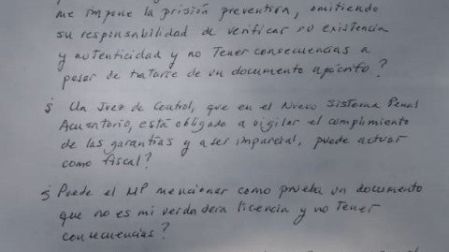 me impone la prisión preventiva, omitiendo
su responsabilidad de verificar su existencia
y autenticidad y no Tener consecuencias a
pesar de tratarse de un documento apócrifo?
¿ Un Juez de Control, que en el Nuevo Sistema Penal
Acusatorio, está obligado a vigilar el cumplimiento
de las garantías y a ser imparcial, puede actuar
como fiscal?
¿ Puede el MP mencionar como prueba un documento
que no es mi verdadera licencia y no Tener
consecuencias?